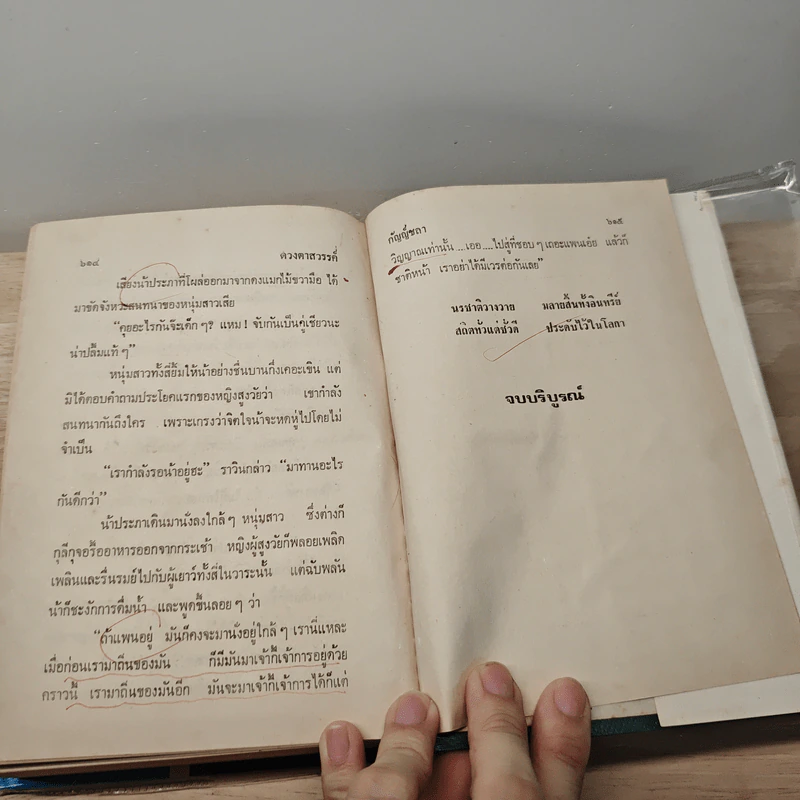 ๖๑๔ ดวงตาสวรรค์
เสียงน้าประภาที่โผล่ออกมาจากดงแมกไม้ขวามือ ได้
มาขัดจังหวะสนทนาของหนุ่มสาวเสีย
“คุยอะไรกันจ๊ะเด็ก ๆ? แหม! จับกันเป็นคู่เชียวนะ
น่าปลื้มแท้ ๆ”
หนุ่มสาวทั้งสี่ยิ้มให้น้าอย่างชื่นบานกึ่งเคอะเขิน แต่
มิได้ตอบคำถามประโยคแรกของหญิงสูงวัยว่า เขากำลัง
สนทนากันถึงใคร เพราะเกรงว่าจิตใจน้าจะหดหู่ไปโดยไม่
จำเป็น
“เรากำลังรอน้าอยู่ฮะ” ราวินกล่าว “มาทานอะไร
กันดีกว่า”
น้าประภาเดินมานั่งลงใกล้ ๆ หนุ่มสาว ซึ่งต่างก็
กุลีกุจอรื้ออาหารออกจากกระเช้า หญิงผู้สูงวัยก็พลอยเพลิด
เพลินและรื่นรมย์ไปกับผู้เยาว์ทั้งสี่ในวาระนั้น แต่ฉับพลัน
น้าก็ชะงักการดื่มน้ำ และพูดขึ้นลอย ๆ ว่า
“ถ้าแพนอยู่ มันก็คงจะมานั่งอยู่ใกล้ ๆ เรานี่แหละ
เมื่อก่อนเรามาถิ่นของมัน ก็มีมันมาเจ้ากี้เจ้าการอยู่ด้วย
คราวนี้ เรามาถิ่นของมันอีก มันจะมาเจ้ากี้เจ้าการได้ก็แต่
กัญญ์ชลา ๖๑๕
วิญญาณเท่านั้น ...เออ....ไปสู่ที่ชอบ ๆ เถอะแพนเอ๋ย แล้วก็
ชาติหน้า เราอย่าได้มีเวรต่อกันเลย”
นรชาติวางวาย มลายสิ้นทั้งอินทรีย์
สถิตทั่วแต่ชั่วดี ประดับไว้ในโลกา
จบบริบูรณ์